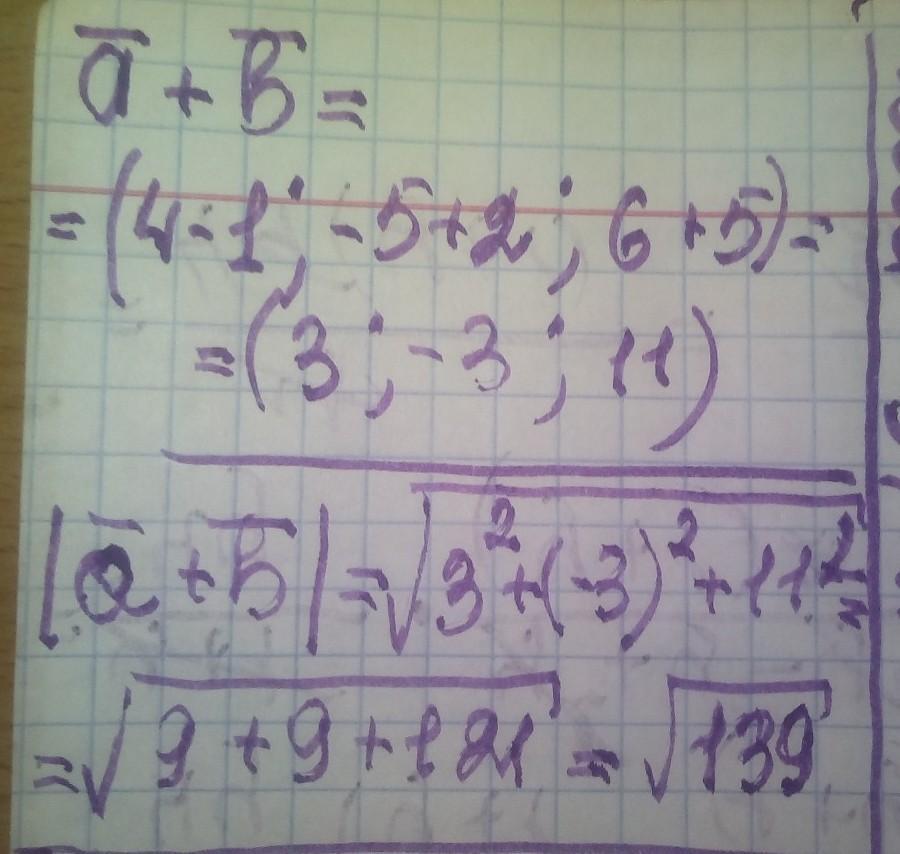 a̅ + b̅ =
= (4-1; -5+2; 6+5) =
= (3; -3; 11)
|a̅ + b̅| = √3² + (-3)² + 11² =
= √9 + 9 + 121 = √139